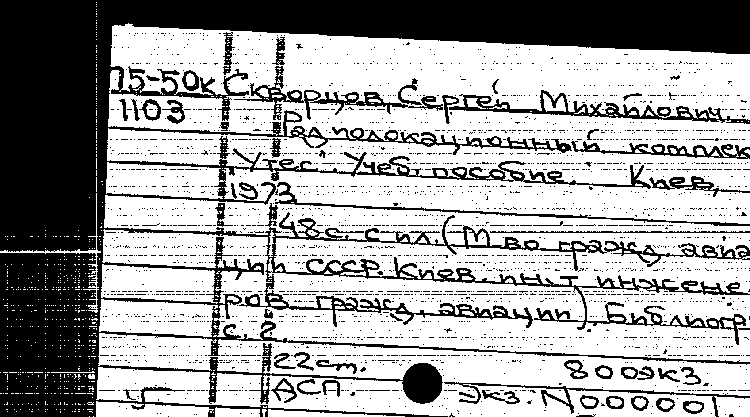 П5-50к Скворцов, Сергей Михайлович.
1103 Радиолокационный комплек
"Утес". Учеб. пособие. Киев,
1973
48 с. с ил. (М-во гражд. авиа
ции СССР. Киев. ин-т инжене
ров гражд. авиации). Библиогр
с. 2.
22 см. 800 экз.
АСП. Экз. N 000001.